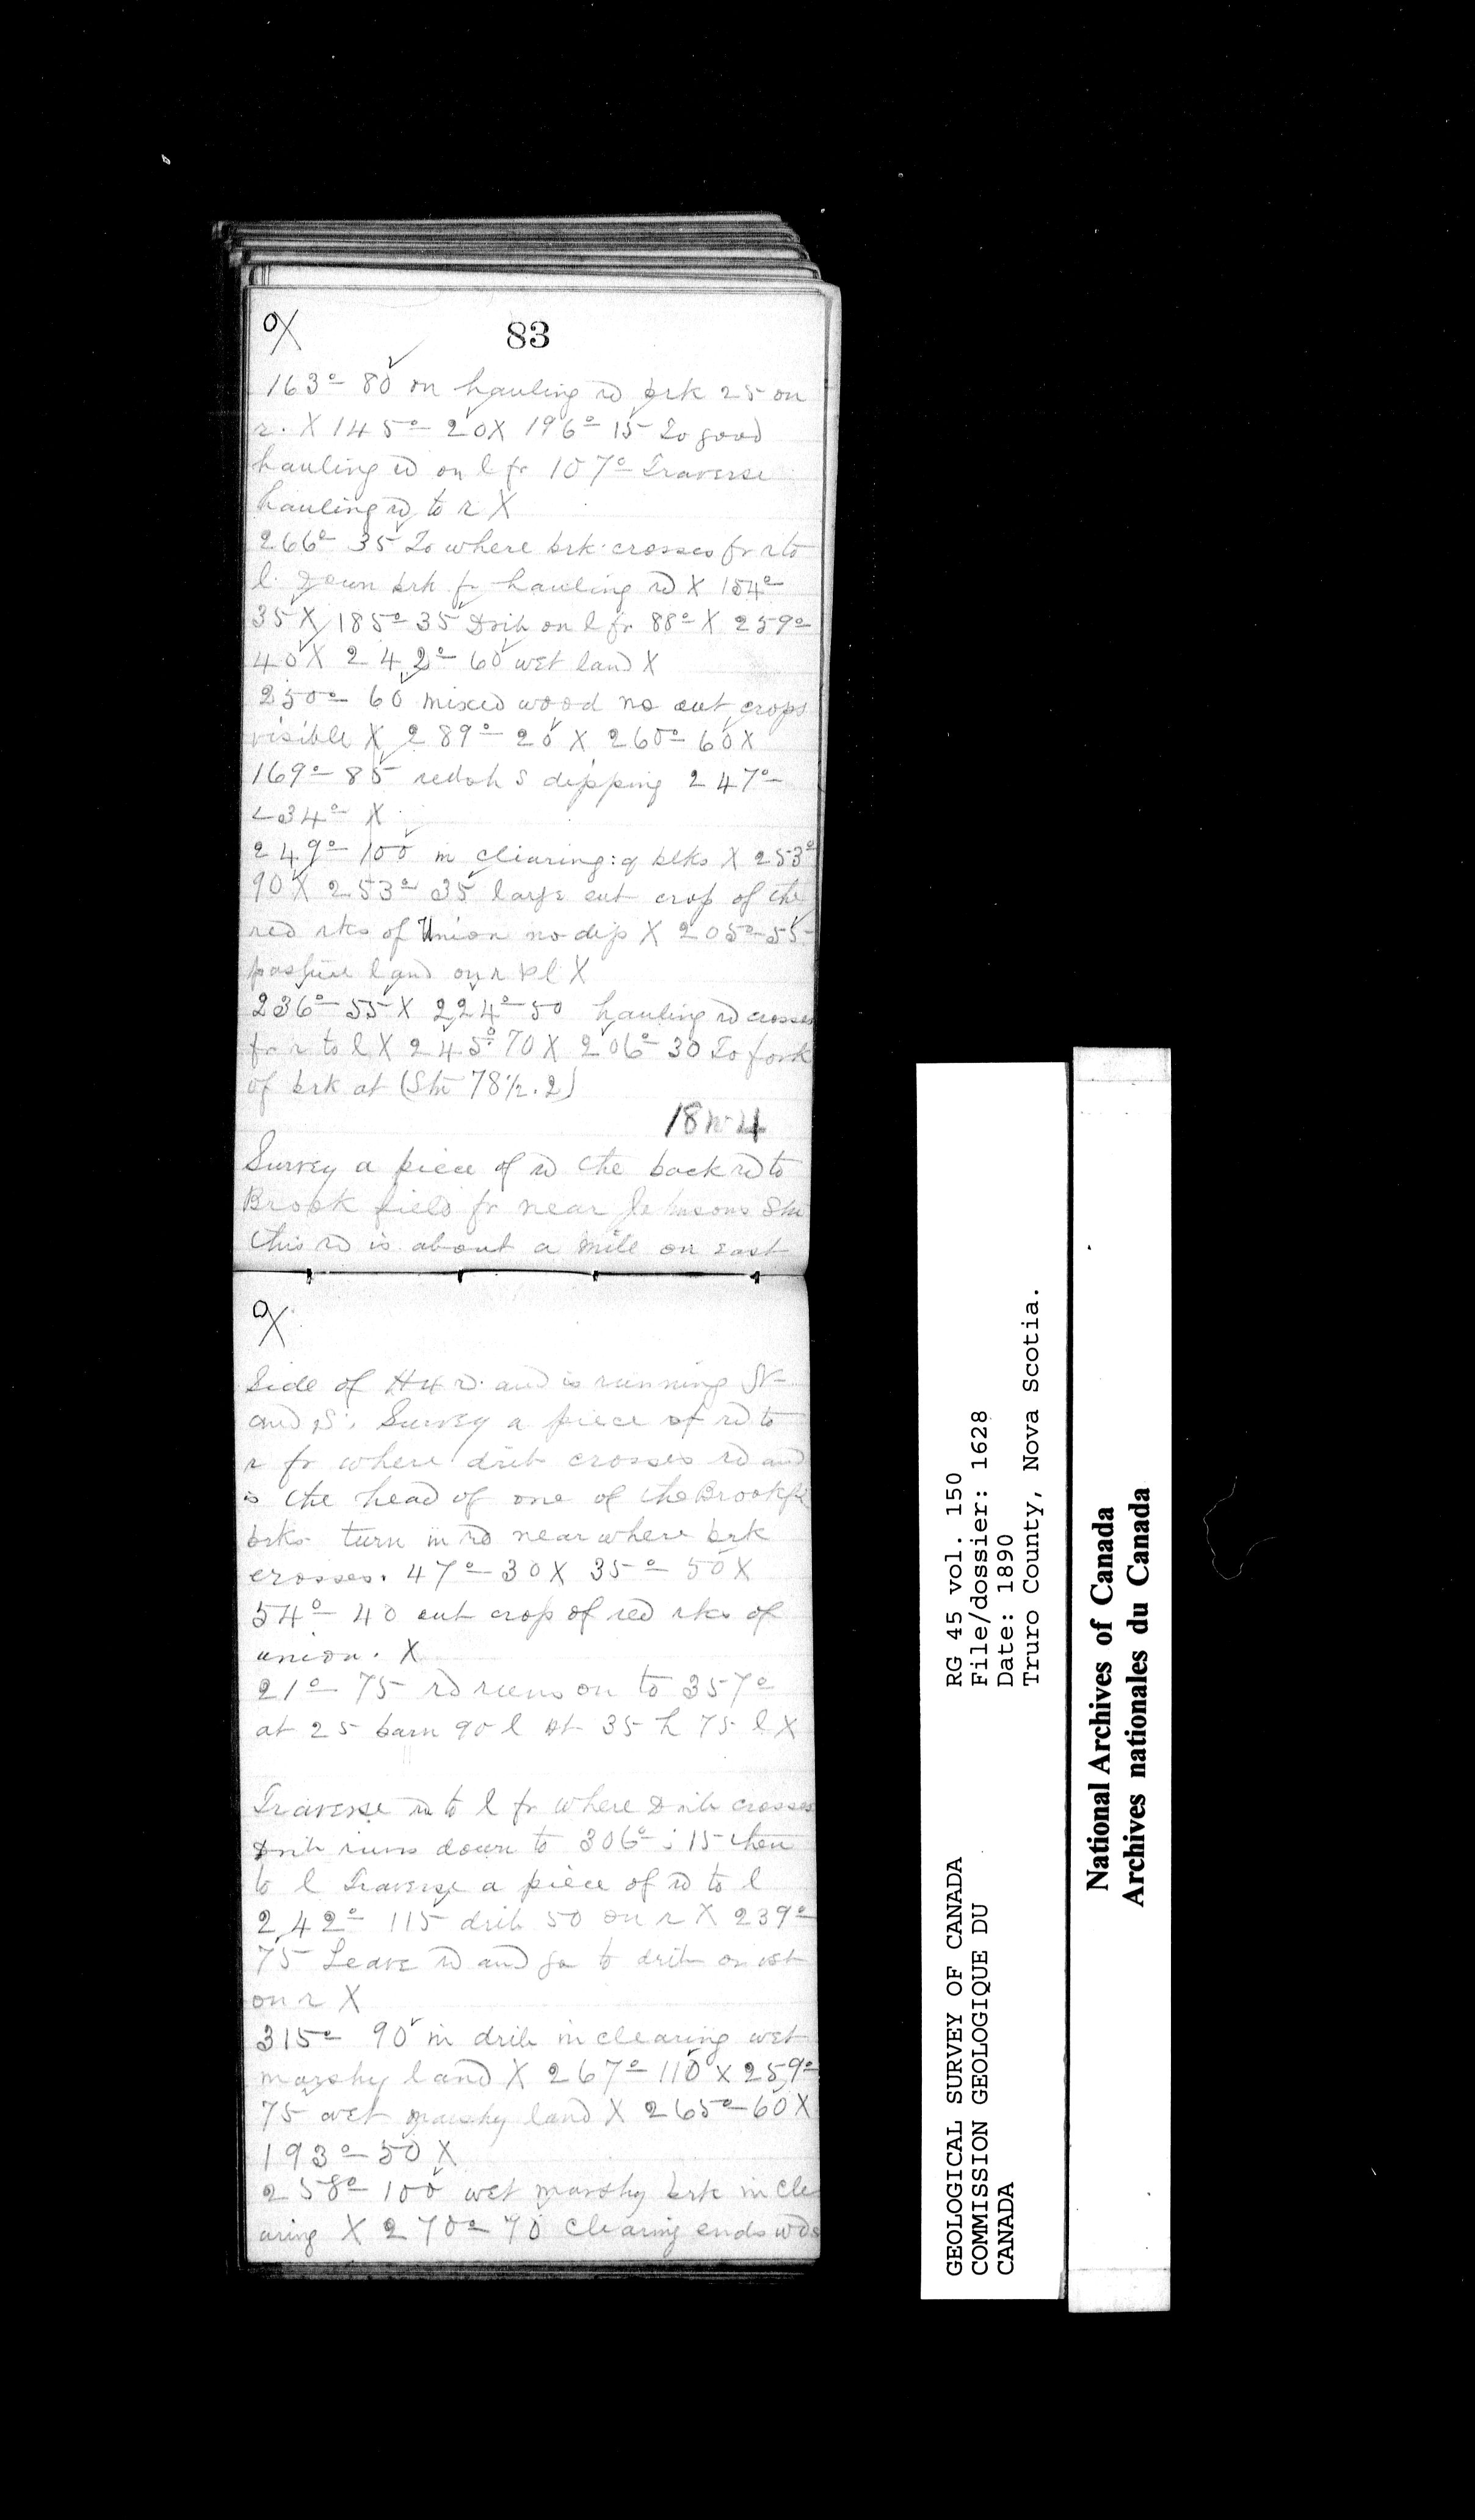 O/X
83
163° 80 on hauling rd brk 25 on
r. X 145° 20 X 196° 15 To good
hauling rd on l fr 107° Traverse
hauling rd to r X
266° 35 To where brk crosses fr r to
l. Down brk fr hauling rd X 154°
35 X 185° 35 Drib on l fr 88° X 259°
40 X 242° 60 wet land X
250° 60 mixed wood no out crops
visible X 289° 20 X 260° 60 X
169° 85 S dipping 247°
<34° X
249° 100 in clearing: q blks X 253°
90 X 253° 35 large out crop of the
red rks of Union no dip X 205° 55
pasture land on r & l X
236° 55 X 224° 50 hauling rd crosses
fr r to l X 245° 70 X 206° 30 To fork
of brk at (Stn 78½.2)
18 4
Survey a piece of rd the back rd to
Brook field fr near Johnsons Stn
this rd is about a mile on east
O/X
Side of rd. and is running N
and S. Survey a piece of rd to
r fr where drib crosses rd and
is the head of one of the Brookfie
brks turn in rd near where brk
crosses. 47° 30 X 35° 50 X
54° 40 out crop of red rks of
union. X
21° 75 rd runs on to 357°
at 25 barn 90 l At 35 h 75 l X
Traverse rd to l fr where Drib crosses
Drib runs down to 306° : 15 then
to l Traverse a piece of rd to l
242° 115 drib 50 on r X 239°
75 Leave rd and go to drib or
on r X
315° 90 in drib in clearing wet
marshy land X 267° 110 X 259°
75 wet marshy land X 265° 60 X
193° 50 X
258° 100 wet marshy brk in cle
aring X 270° 70 clearing ends wds
RG 45 vol. 150
File/dossier: 1628
Date: 1890
Truro County, Nova Scotia.
GEOLOGICAL SURVEY OF CANADA
COMMISSION GEOLOGIQUE DU
CANADA
National Archives of Canada
Archives nationales du Canada